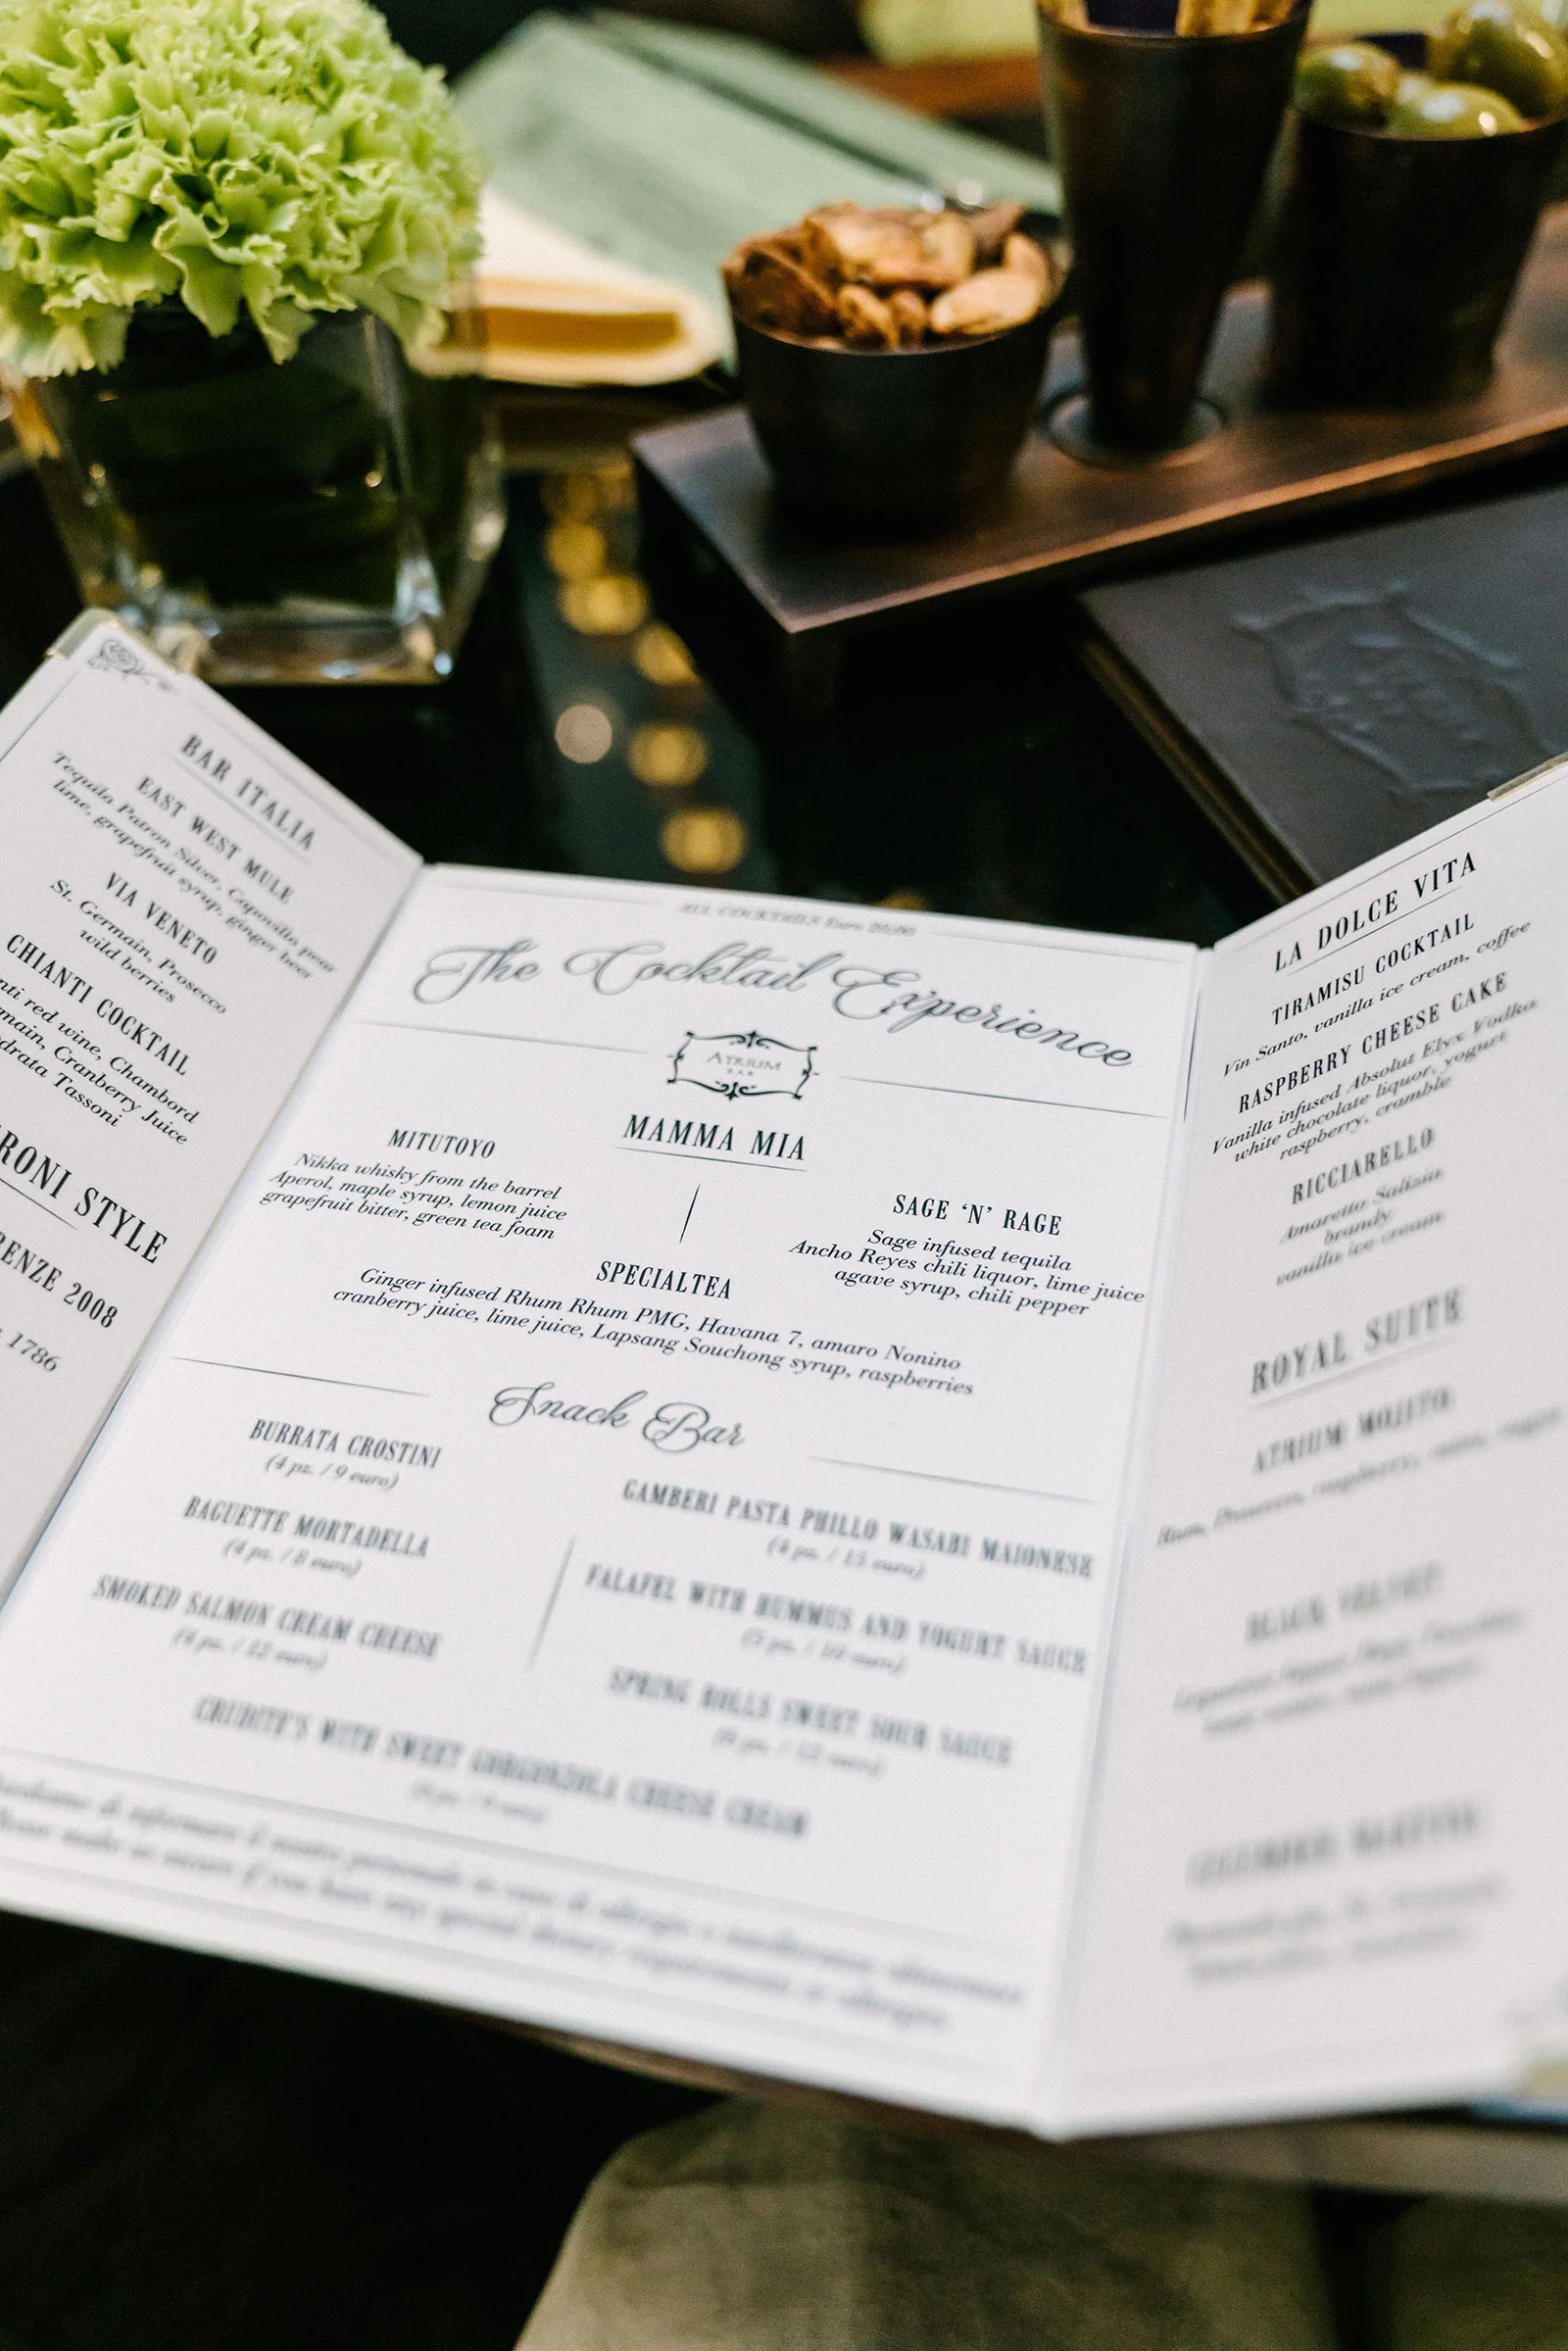 BAR ITALIA
EAST WEST MULE
Tequila Patron Silver, Capovilla pear
lime, grapefruit syrup, ginger beer
VIA VENETO
St. Germain, Prosecco
wild berries
CHIANTI COCKTAIL
red wine, Chambord
Cranberry Juice
Tassoni
STYLE
2008
1786
ALL COCKTAILS Euro 20,00
The Cocktail Experience
ATRIUM
BAR
MAMMA MIA
MITUTOYO
Nikka whisky from the barrel
Aperol, maple syrup, lemon juice
grapefruit bitter, green tea foam
SAGE ‘N’ RAGE
Sage infused tequila
Ancho Reyes chili liquor, lime juice
agave syrup, chili pepper
SPECIALTEA
Ginger infused Rhum Rhum PMG, Havana 7, amaro Nonino
cranberry juice, lime juice, Lapsang Souchong syrup, raspberries
Snack Bar
BURRATA CROSTINI
(4 pz. / 9 euro)
BAGUETTE MORTADELLA
(4 pz. / 8 euro)
SMOKED SALMON CREAM CHEESE
(4 pz. / 12 euro)
GAMBERI PASTA PHILLO WASABI MAIONESE
(4 pz. / 15 euro)
FALAFEL WITH HUMMUS AND YOGURT SAUCE
(5 pz. / 10 euro)
SPRING ROLLS SWEET SOUR SAUCE
CRUDITE'S WITH SWEET GORGONZOLA CHEESE CREAM
LA DOLCE VITA
TIRAMISU COCKTAIL
Vin Santo, vanilla ice cream, coffee
RASPBERRY CHEESE CAKE
Vanilla infused Absolut Elyx Vodka
white chocolate liquor, yogurt
raspberry, cramble
RICCIARELLO
Amaretto Saliza
brandy
vanilla ice cream
ROYAL SUITE
ATRIUM MOJITO
BLACK VELVET